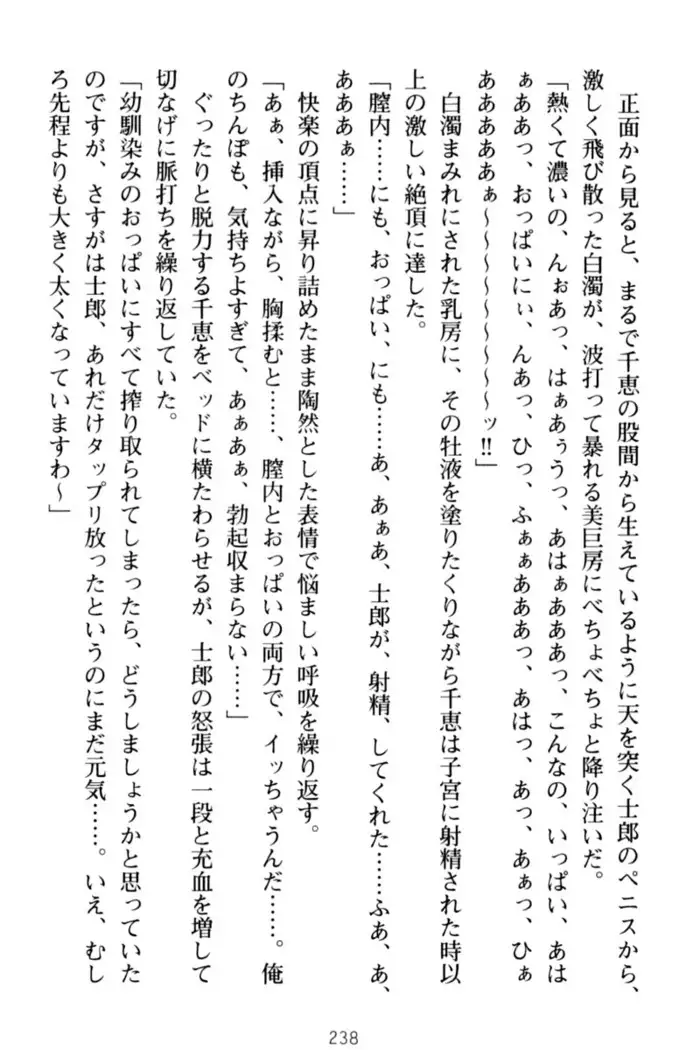 正面から見ると、まるで千恵の股間から生えているように天を突く士郎のペニスから、
激しく飛び散った白濁が、波打って暴れる美巨房にべちょべちょと降り注いだ。
「熱くて濃いの、んぉあっ、はぁあぅうっ、あはぁあああっ、こんなの、いっぱい、あは
ぁああっ、おっぱいにぃ、んあっ、ひっ、ふぁぁあああっ、あはっ、あっ、あぁっ、ひぁ
ああああああぁ～～～～～～～～ッ!!」
白濁まみれにされた乳房に、その牡液を塗りたくりながら千恵は子宮に射精された時以
上の激しい絶頂に達した。
「膣内……にも、おっぱい、にも……あ、あぁあ、士郎が、射精、してくれた……ふあ、あ、
ああああぁ……」
快楽の頂点に昇り詰めたまま陶然とした表情で悩ましい呼吸を繰り返す。
「あぁ、挿入ながら、胸揉むと……、膣内とおっぱいの両方で、イッちゃうんだ……。俺
のちんぽも、気持ちよすぎて、あぁあぁ、勃起収まらない……」
ぐったりと脱力する千恵をベッドに横たわらせるが、士郎の怒張は一段と充血を増して
切なげに脈打ちを繰り返していた。
「幼馴染みのおっぱいにすべて搾り取られてしまったら、どうしましょうかと思っていた
のですが、さすがは士郎、あれだけタップリ放ったというのにまだ元気……。いえ、むし
ろ先程よりも大きく太くなっていますわ～」
238